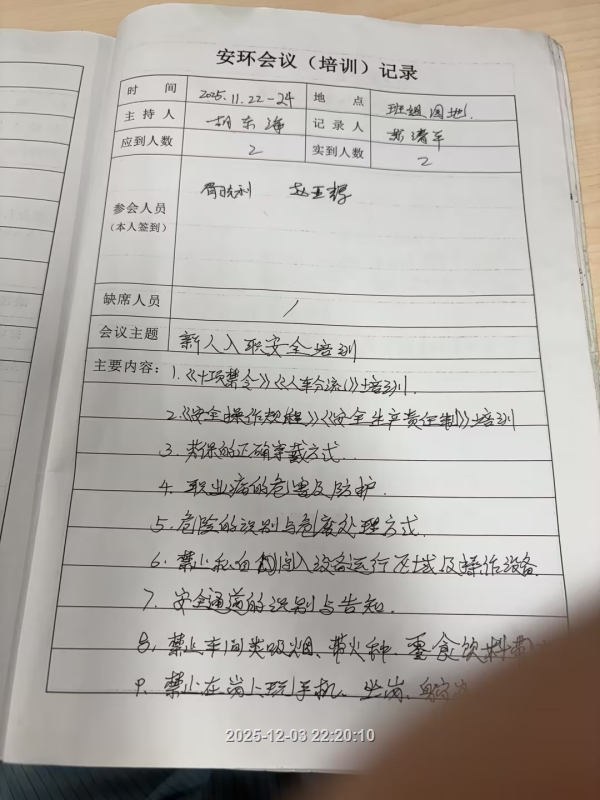 安环会议（培训）记录
时 间 2025.11.22-24 地 点 班组园地.
主 持 人 胡东海 记 录 人 清平
应到人数 2 实到人数 2
参会人员
（本人签到）
缺席人员 /
会议主题 新人入职安全培训
主要内容：1.《十项禁令》《人车分流》培训.
2.《安全操作规程》《安全生产责任制》培训
3. 劳保的正确穿戴方式.
4. 职业病的危害及防护.
5. 危险的识别与危废处理方式.
6. 禁止私自闯入设备运行区域及操作设备.
7. 安全通道的识别与告知.
8. 禁止车间类吸烟、带火种.零食饮料
9. 禁止在岗上玩手机、坐岗、
2025-12-03 22:20:10